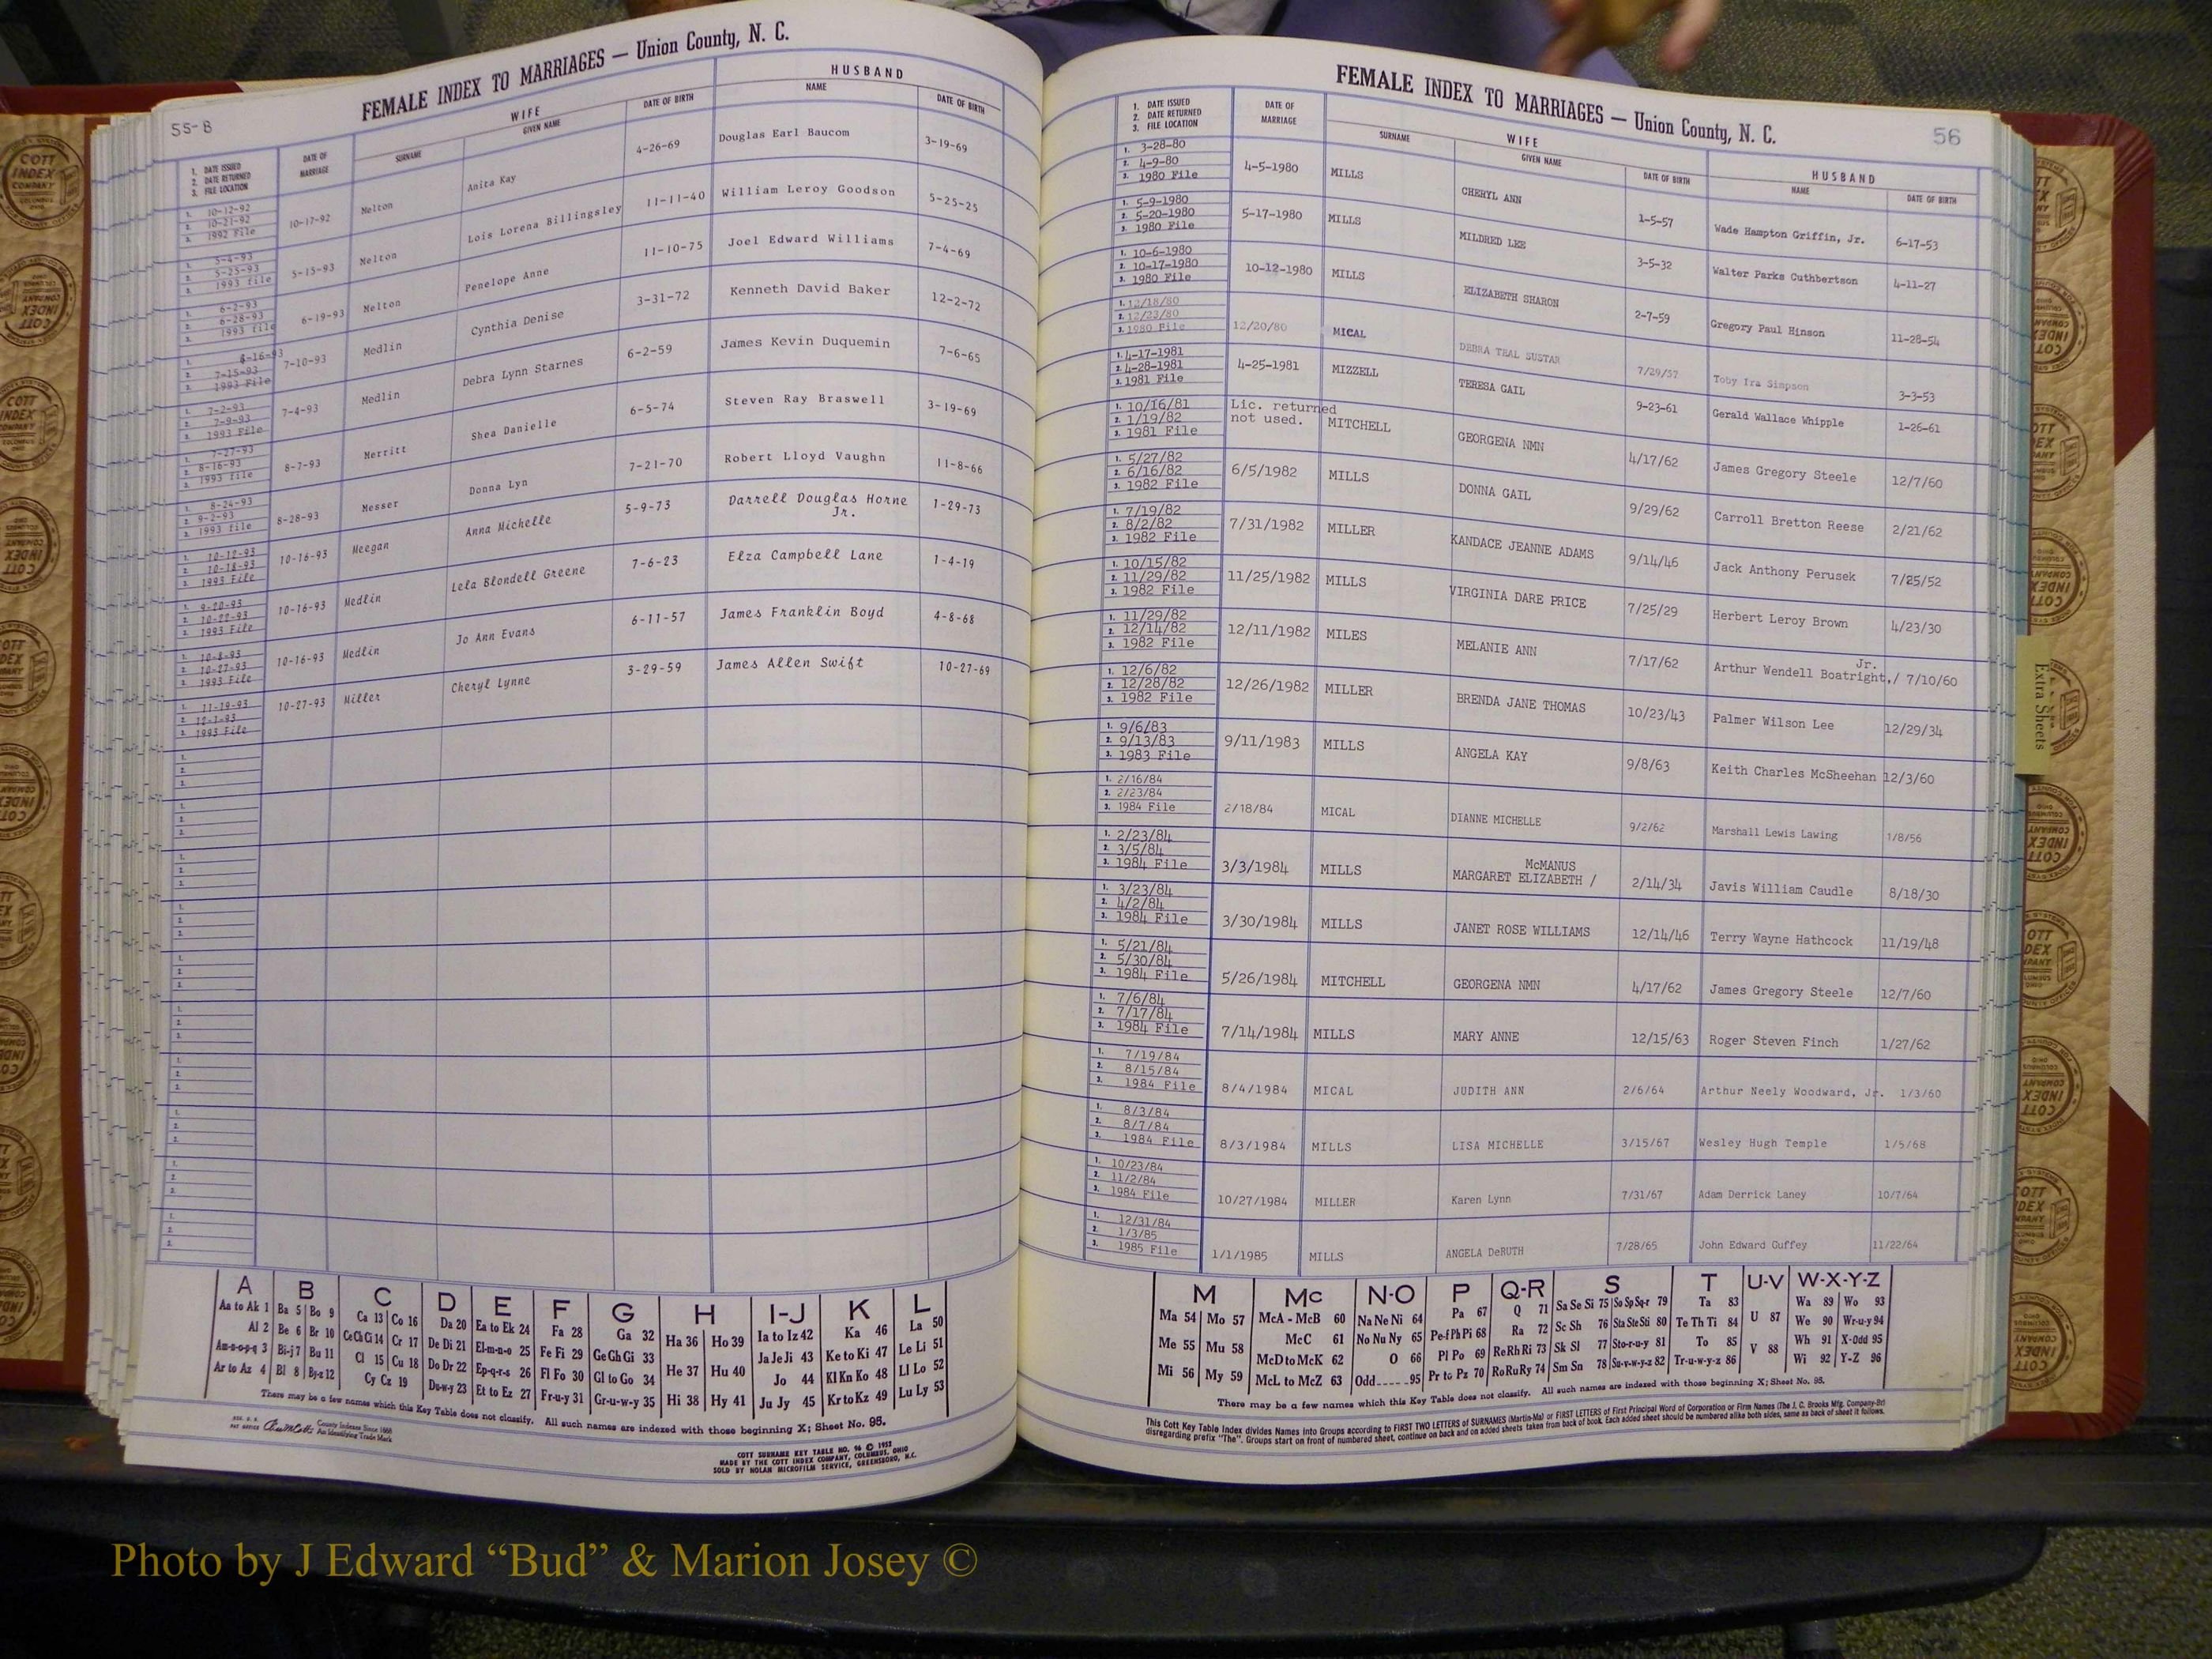 55-B
FEMALE INDEX TO MARRIAGES — Union County, N. C.
1. DATE ISSUED
2. DATE RETURNED
3. FILE LOCATION
DATE OF MARRIAGE
WIFE
SURNAME
GIVEN NAME
DATE OF BIRTH
HUSBAND
NAME
DATE OF BIRTH
1. 10-12-92
2. 10-21-92
3. 1992 File
10-17-92 Melton Anita Kay 4-26-69 Douglas Earl Baucom 3-19-69
1. 5-4-93
2. 5-25-93
3. 1993 file
5-15-93 Melton Lois Lorena Billingsley 11-11-40 William Leroy Goodson 5-25-25
1. 6-2-93
2. 6-28-93
3. 1993 file
6-19-93 Melton Penelope Anne 11-10-75 Joel Edward Williams 7-4-69
1. 6-16-93
2. 7-15-93
3. 1993 File
7-10-93 Medlin Cynthia Denise 3-31-72 Kenneth David Baker 12-2-72
1. 7-2-93
2. 7-9-93
3. 1993 File
7-4-93 Medlin Debra Lynn Starnes 6-2-59 James Kevin Duquemin 7-6-65
1. 7-27-93
2. 8-16-93
3. 1993 File
8-7-93 Merritt Shea Danielle 6-5-74 Steven Ray Braswell 3-19-69
1. 8-24-93
2. 9-2-93
3. 1993 file
8-28-93 Messer Donna Lyn 7-21-70 Robert Lloyd Vaughn 11-8-66
1. 10-12-93
2. 10-18-93
3. 1993 File
10-16-93 Meegan Anna Michelle 5-9-73 Darrell Douglas Horne Jr. 1-29-73
1. 9-20-93
2. 10-22-93
3. 1993 File
10-16-93 Medlin Lela Blondell Greene 7-6-23 Elza Campbell Lane 1-4-19
1. 10-8-93
2. 10-27-93
3. 1993 File
10-16-93 Medlin Jo Ann Evans 6-11-57 James Franklin Boyd 4-8-68
1. 11-19-93
2. 12-1-93
3. 1993 File
10-27-93 Miller Cheryl Lynne 3-29-59 James Allen Swift 10-27-69
A B C D E F G H I-J K L
Aa to Ak 1 Ba 5 Bo 9 Ca 13 Co 16 Da 20 Ea to Ek 24 Fa 28 Ga 32 Ha 36 Ho 39 Ia to Iz 42 Ka 46 La 50
Al 2 Be 6 Br 10 Ce Ch Ci 14 Cr 17 De Di 21 El-m-n-o 25 Fe Fi 29 Ge Gh Gi 33 He 37 Hu 40 Ja Je Ji 43 Ke to Ki 47 Le Li 51
Am-n-o-p-q 3 Bi-j 7 Bu 11 Cl 15 Cu 18 Do Dr 22 Ep-q-r-s 26 Fl Fo 30 Gl to Go 34 Hi 38 Hy 41 Jo 44 Kl Kn Ko 48 Ll Lo 52
Ar to Az 4 Bl 8 By-z 12 Cy Cz 19 Du-w-y 23 Et to Ez 27 Fr-u-y 31 Gr-u-w-y 35 Ju Jy 45 Kr to Kz 49 Lu Ly 53
There may be a few names which this Key Table does not classify. All such names are indexed with those beginning X; Sheet No. 95.
County Indexes Since 1888
An Identifying Trade Mark
COTT SURNAME KEY TABLE NO. 96 © 1952
MADE BY THE COTT INDEX COMPANY, COLUMBUS, OHIO
SOLD BY NOLAN MICROFILM SERVICE, GREENSBORO, N.C.
56
FEMALE INDEX TO MARRIAGES — Union County, N. C.
1. DATE ISSUED
2. DATE RETURNED
3. FILE LOCATION
DATE OF MARRIAGE
WIFE
SURNAME
GIVEN NAME
DATE OF BIRTH
HUSBAND
NAME
DATE OF BIRTH
1. 3-28-80
2. 4-9-80
3. 1980 File
4-5-1980 MILLS CHERYL ANN 1-5-57 Wade Hampton Griffin, Jr. 6-17-53
1. 5-9-1980
2. 5-20-1980
3. 1980 File
5-17-1980 MILLS MILDRED LEE 3-5-32 Walter Parks Cuthbertson 4-11-27
1. 10-6-1980
2. 10-17-1980
3. 1980 File
10-12-1980 MILLS ELIZABETH SHARON 2-7-59 Gregory Paul Hinson 11-28-54
1. 12/18/80
2. 12/23/80
3. 1980 File
12/20/80 MICAL DEBRA TEAL SUSTAR 7/29/57 Toby Ira Simpson 3-3-53
1. 4-17-1981
2. 4-28-1981
3. 1981 File
4-25-1981 MIZZELL TERESA GAIL 9-23-61 Gerald Wallace Whipple 1-26-61
1. 10/16/81
2. 1/19/82
3. 1981 File
Lic. returned not used. MITCHELL GEORGENA NMN 4/17/62 James Gregory Steele 12/7/60
1. 5/27/82
2. 6/16/82
3. 1982 File
6/5/1982 MILLS DONNA GAIL 9/29/62 Carroll Bretton Reese 2/21/62
1. 7/19/82
2. 8/2/82
3. 1982 File
7/31/1982 MILLER KANDACE JEANNE ADAMS 9/14/46 Jack Anthony Perusek 7/25/52
1. 10/15/82
2. 11/29/82
3. 1982 File
11/25/1982 MILLS VIRGINIA DARE PRICE 7/25/29 Herbert Leroy Brown 4/23/30
1. 11/29/82
2. 12/14/82
3. 1982 File
12/11/1982 MILES MELANIE ANN 7/17/62 Arthur Wendell Boatright,/ Jr. 7/10/60
1. 12/6/82
2. 12/28/82
3. 1982 File
12/26/1982 MILLER BRENDA JANE THOMAS 10/23/43 Palmer Wilson Lee 12/29/34
1. 9/6/83
2. 9/13/83
3. 1983 File
9/11/1983 MILLS ANGELA KAY 9/8/63 Keith Charles McSheehan 12/3/60
1. 2/16/84
2. 2/23/84
3. 1984 File
2/18/84 MICAL DIANNE MICHELLE 9/2/62 Marshall Lewis Lawing 1/8/56
1. 2/23/84
2. 3/5/84
3. 1984 File
3/3/1984 MILLS MARGARET ELIZABETH / McMANUS 2/14/34 Javis William Caudle 8/18/30
1. 3/23/84
2. 4/2/84
3. 1984 File
3/30/1984 MILLS JANET ROSE WILLIAMS 12/14/46 Terry Wayne Hathcock 11/19/48
1. 5/21/84
2. 5/30/84
3. 1984 File
5/26/1984 MITCHELL GEORGENA NMN 4/17/62 James Gregory Steele 12/7/60
1. 7/6/84
2. 7/17/84
3. 1984 File
7/14/1984 MILLS MARY ANNE 12/15/63 Roger Steven Finch 1/27/62
1. 7/19/84
2. 8/15/84
3. 1984 File
8/4/1984 MICAL JUDITH ANN 2/6/64 Arthur Neely Woodward, Jr. 1/3/60
1. 8/3/84
2. 8/7/84
3. 1984 File
8/3/1984 MILLS LISA MICHELLE 3/15/67 Wesley Hugh Temple 1/5/68
1. 10/23/84
2. 11/2/84
3. 1984 File
10/27/1984 MILLER Karen Lynn 7/31/67 Adam Derrick Laney 10/7/64
1. 12/31/84
2. 1/3/85
3. 1985 File
1/1/1985 MILLS ANGELA DeRUTH 7/28/65 John Edward Guffey 11/22/64
M Mc N-O P Q-R S T U-V W-X-Y-Z
Ma 54 Mo 57 McA - McB 60 Na Ne Ni 64 Pa 67 Q 71 Sa Se Si 75 So Sp Sq-r 79 Ta 83 U 87 Wa 89 Wo 93
Me 55 Mu 58 McC 61 No Nu Ny 65 Pe-f Ph Pi 68 Ra 72 Sc Sh 76 Sta Ste Sti 80 Te Th Ti 84 V 88 We 90 Wr-u-y 94
Mi 56 My 59 McD to McK 62 O 66 Pl Po 69 Re Rh Ri 73 Sk Sl 77 Sto-r-u-y 81 To 85 Wh 91 X-Odd 95
McL to McZ 63 Odd 95 Pr to Pz 70 Ro Ru Ry 74 Sm Sn 78 Su-v-w-y-z 82 Tr-u-w-y-z 86 Wi 92 Y-Z 96
There may be a few names which this Key Table does not classify. All such names are indexed with those beginning X; Sheet No. 95.
This Cott Key Table Index divides Names into Groups according to FIRST TWO LETTERS of SURNAMES (Martin-Ma) or FIRST LETTERS of First Principal Word of Corporation or Firm Names (The J. C. Brooks Mfg. Company-Br)
disregarding prefix "The". Groups start on front of numbered sheet, continue on back and on added sheets taken from back of book. Each added sheet should be numbered alike both sides, same as back of sheet it follows.
Extra Sheets
COTT INDEX COMPANY COLUMBUS OHIO
Photo by J Edward “Bud” & Marion Josey ©